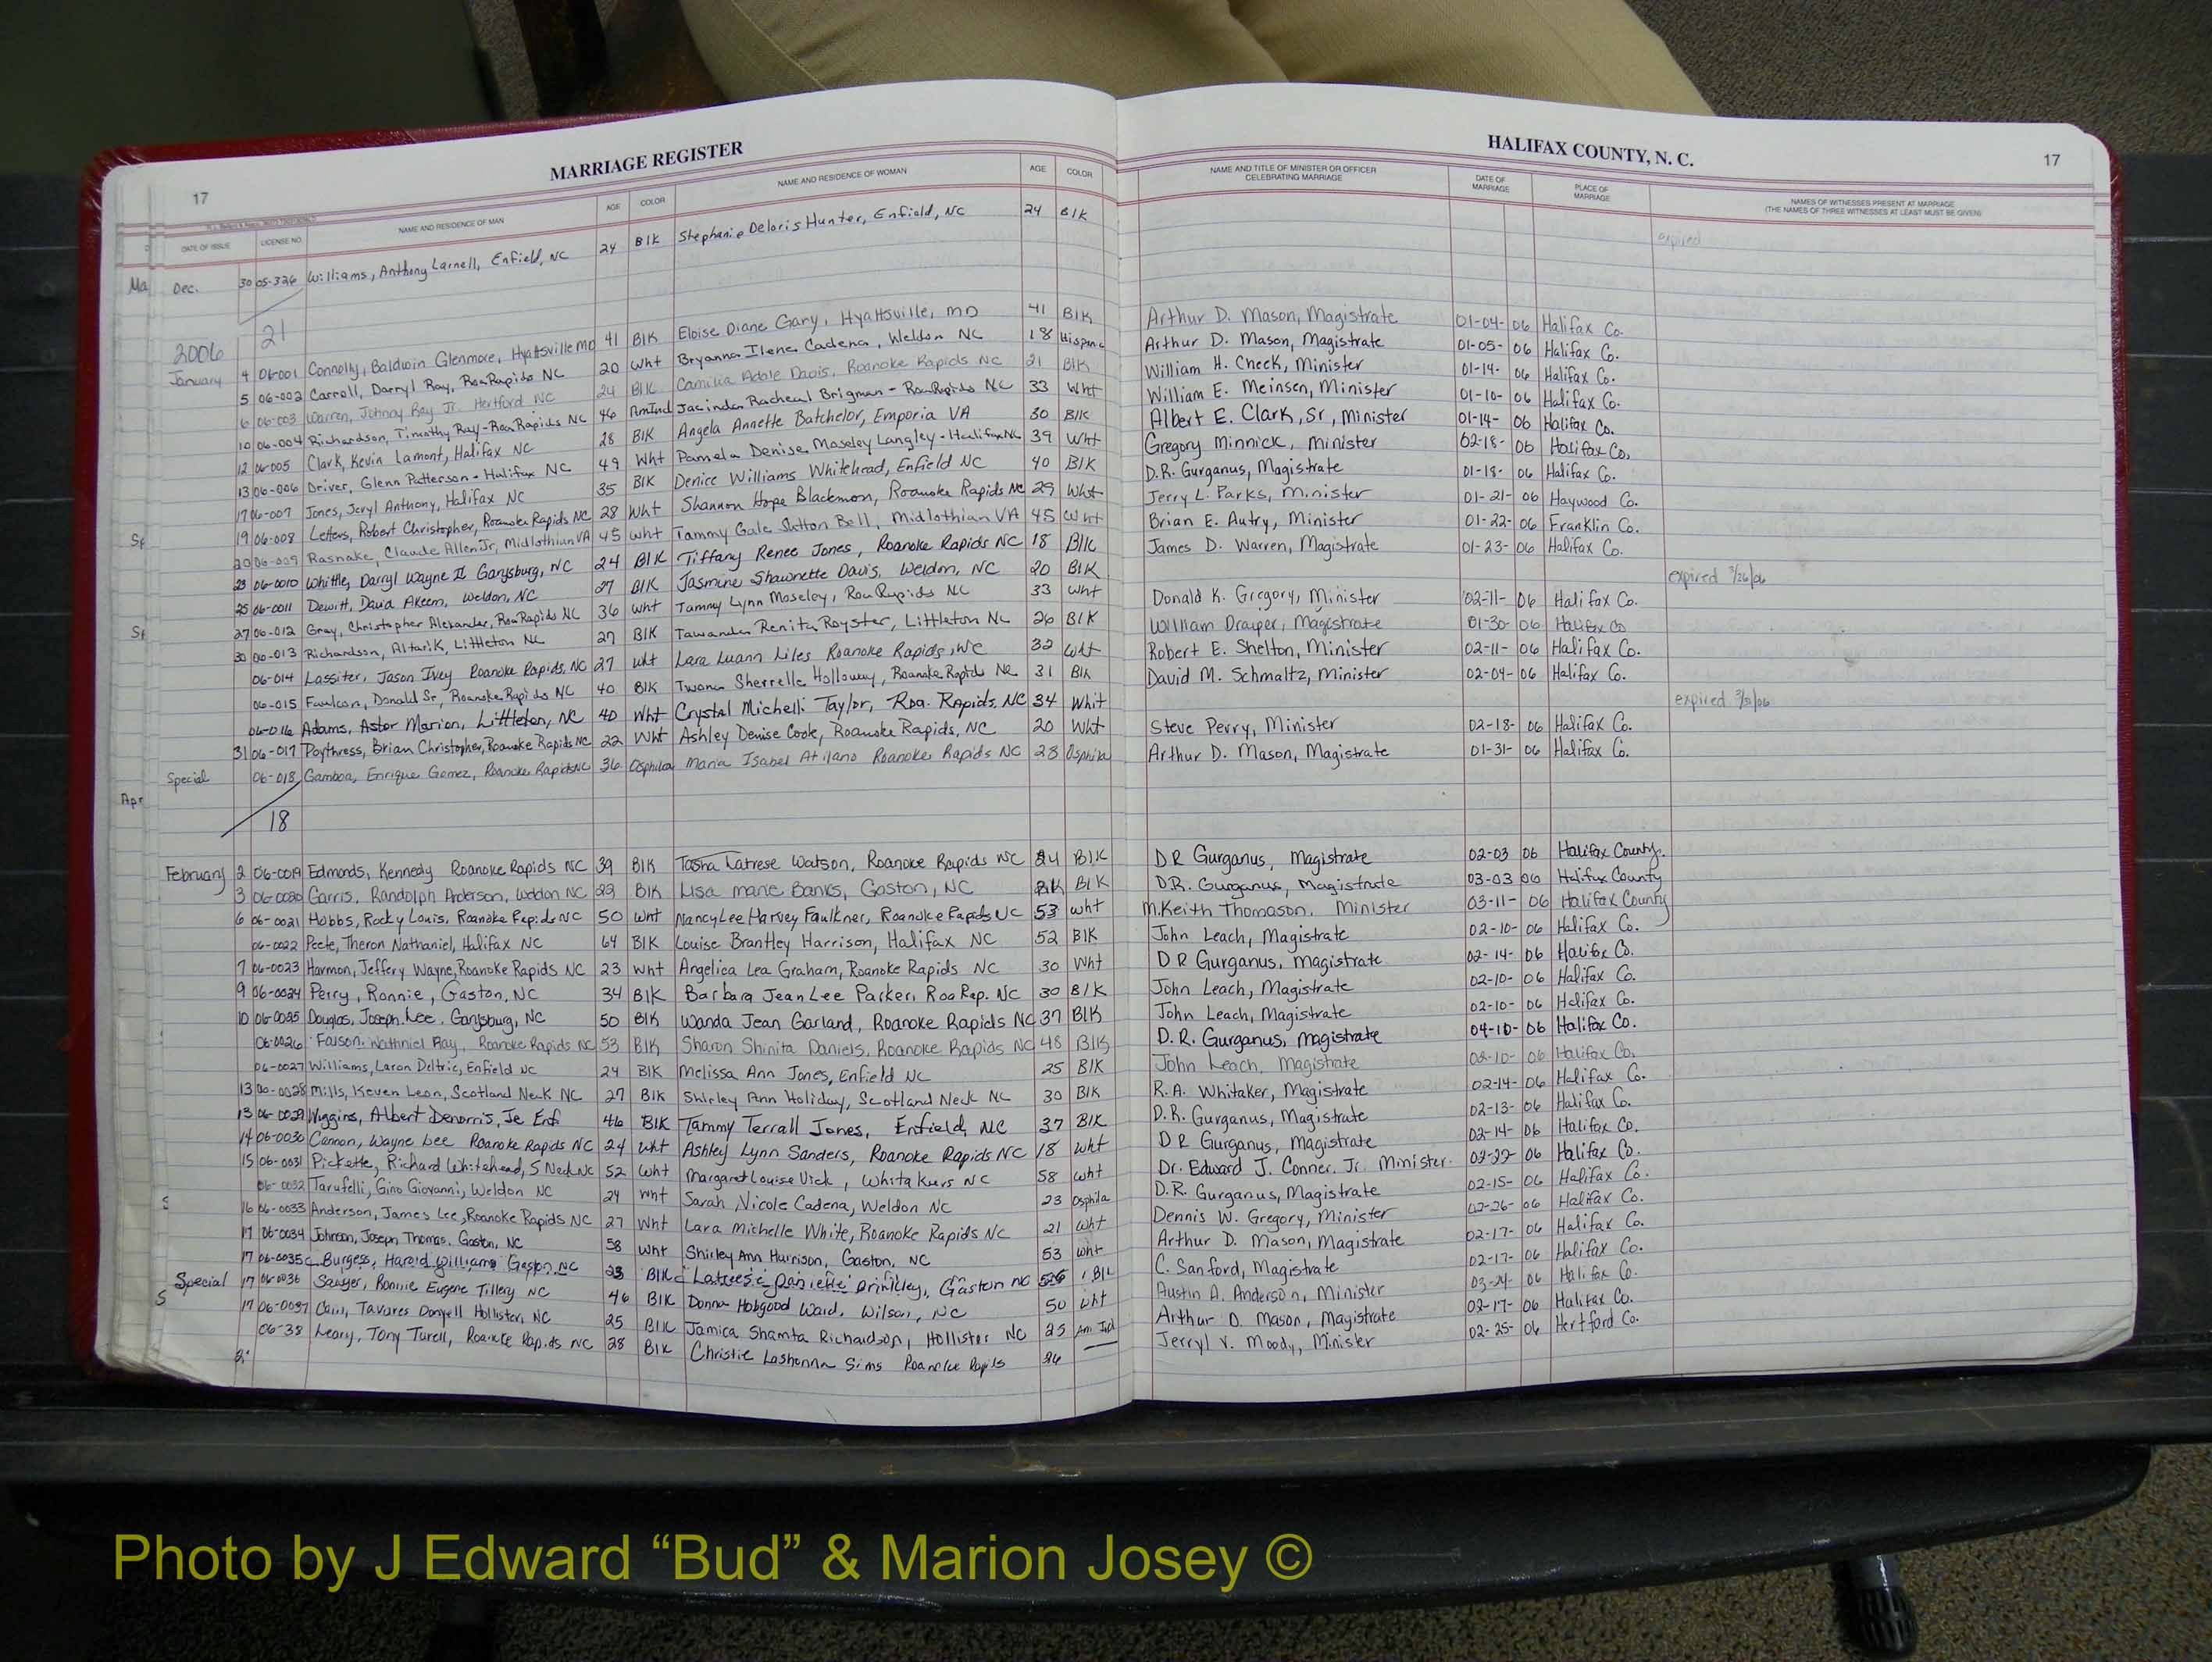 MARRIAGE REGISTER
HALIFAX COUNTY, N. C.
17
17
DATE OF ISSUE LICENSE NO. NAME AND RESIDENCE OF MAN AGE COLOR NAME AND RESIDENCE OF WOMAN AGE COLOR NAME AND TITLE OF MINISTER OR OFFICER CELEBRATING MARRIAGE DATE OF MARRIAGE PLACE OF MARRIAGE NAMES OF WITNESSES PRESENT AT MARRIAGE (THE NAMES OF THREE WITNESSES AT LEAST MUST BE GIVEN)
Ma Dec. 30 05-326 Williams, Anthony Larnell, Enfield, NC 24 Blk Stephanie Deloris Hunter, Enfield, NC 24 Blk expired
21
2006
January 4 06-001 Connolly, Baldwin Glenmore, Hyattsville MD 41 Blk Eloise Diane Gary, Hyattsville, MD 41 Blk Arthur D. Mason, Magistrate 01-04-06 Halifax Co.
5 06-002 Carroll, Darryl Ray, Roa Rapids NC 20 Wht Bryanna Ilene Cadena, Weldon NC 18 Hispanc Arthur D. Mason, Magistrate 01-05-06 Halifax Co.
6 06-003 Warren, Johnny Ray Jr. Hertford NC 24 Blk Camilia Adele Davis, Roanoke Rapids NC 21 Blk William H. Cheek, Minister 01-14-06 Halifax Co.
10 06-004 Richardson, Timothy Ray-Roa Rapids NC 46 AmInd Jacinda Racheal Brigman - Roa Rapids NC 33 Wht William E. Meinsen, Minister 01-10-06 Halifax Co.
12 06-005 Clark, Kevin Lamont, Halifax NC 28 Blk Angela Annette Batchelor, Emporia VA 30 Blk Albert E. Clark, Sr, Minister 01-14-06 Halifax Co.
13 06-006 Driver, Glenn Patterson - Halifax NC 49 Wht Pamela Denise Moseley Langley - Halifax NC 39 Wht Gregory Minnick, Minister 02-18-06 Halifax Co.
17 06-007 Jones, Jeryl Anthony, Halifax NC 35 Blk Denice Williams Whitehead, Enfield NC 40 Blk D.R. Gurganus, Magistrate 01-18-06 Halifax Co.
19 06-008 Letters, Robert Christopher, Roanoke Rapids NC 28 Wht Shannon Hope Blackmon, Roanoke Rapids NC 29 Wht Jerry L. Parks, Minister 01-21-06 Haywood Co.
20 06-009 Rasnake, Claude Allen Jr, Midlothian VA 45 Wht Tammy Gale Sutton Bell, Midlothian VA 45 Wht Brian E. Autry, Minister 01-22-06 Franklin Co.
23 06-0010 Whittle, Darryl Wayne II Garysburg, NC 24 Blk Tiffany Renee Jones, Roanoke Rapids NC 18 Blk James D. Warren, Magistrate 01-23-06 Halifax Co.
25 06-0011 Dewitt, David Akeem, Weldon, NC 27 Blk Jasmine Shawnette Davis, Weldon, NC 20 Blk expired 3/26/06
27 06-012 Gray, Christopher Alexander, Roa Rapids NC 36 Wht Tammy Lynn Moseley, Roa Rapids NC 33 Wht Donald K. Gregory, Minister 02-11-06 Halifax Co.
30 06-013 Richardson, Altarik, Littleton NC 27 Blk Tawanda Renita Royster, Littleton NC 26 Blk William Draper, Magistrate 01-30-06 Halifax Co
06-014 Lassiter, Jason Ivey Roanoke Rapids, NC 27 Wht Lara Luann Liles Roanoke Rapids, NC 32 Wht Robert E. Shelton, Minister 02-11-06 Halifax Co.
06-015 Faulcon, Donald Sr, Roanoke Rapids NC 40 Blk Twana Sherrelle Holloway, Roanoke Rapids NC 31 Blk David M. Schmaltz, Minister 02-04-06 Halifax Co.
06-016 Adams, Astor Marion, Littleton, NC 40 Wht Crystal Michelli Taylor, Roa. Rapids, NC 34 Whit expired 3/31/06
31 06-017 Poythress, Brian Christopher, Roanoke Rapids NC 22 Wht Ashley Denise Cook, Roanoke Rapids, NC 20 Wht Steve Perry, Minister 02-18-06 Halifax Co.
Special 06-018 Gamboa, Enrique Gomez, Roanoke Rapids NC 36 Maria Isabel Atilano Roanoke Rapids NC 28 Arthur D. Mason, Magistrate 01-31-06 Halifax Co.
Apr
18
February 2 06-0019 Edmonds, Kennedy Roanoke Rapids NC 39 Blk Tasha Latrese Watson, Roanoke Rapids NC 24 Blk D R Gurganus, Magistrate 02-03 06 Halifax County.
3 06-0020 Garris, Randolph Anderson, Weldon NC 29 Blk Lisa Marie Banks, Gaston, NC Blk D.R. Gurganus, Magistrate 03-03 06 Halifax County
6 06-0021 Hobbs, Rocky Louis, Roanoke Rapids NC 50 Wht Nancy Lee Harvey Faulkner, Roanoke Rapids NC 53 Wht M. Keith Thomason, Minister 03-11-06 Halifax County
06-0022 Peete, Theron Nathaniel, Halifax NC 64 Blk Louise Brantley Harrison, Halifax NC 52 Blk John Leach, Magistrate 02-10-06 Halifax Co.
7 06-0023 Harmon, Jeffery Wayne, Roanoke Rapids NC 23 Wht Angelica Lea Graham, Roanoke Rapids NC 30 Wht D R Gurganus, Magistrate 02-14-06 Halifax Co.
9 06-0024 Perry, Ronnie, Gaston, NC 34 Blk Barbara Jean Lee Parker, Roa Rap. NC 30 Blk John Leach, Magistrate 02-10-06 Halifax Co.
10 06-0025 Douglas, Joseph Lee, Garysburg, NC 50 Blk Wanda Jean Garland, Roanoke Rapids NC 37 Blk John Leach, Magistrate 02-10-06 Halifax Co.
06-0026 Faison, Nathniel Ray, Roanoke Rapids NC 53 Blk Sharon Shinita Daniels, Roanoke Rapids NC 48 Blk D. R. Gurganus, Magistrate 04-10-06 Halifax Co.
06-0027 Williams, Laron Deltric, Enfield NC 24 Blk Melissa Ann Jones, Enfield NC 25 Blk John Leach, Magistrate 02-10-06 Halifax Co.
13 06-0028 Mills, Keven Leon, Scotland Neck NC 27 Blk Shirley Ann Holiday, Scotland Neck NC 30 Blk R.A. Whitaker, Magistrate 02-14-06 Halifax Co.
13 06-0029 Wiggins, Albert Denorris, Je Enf 46 Blk Tammy Terrall Jones, Enfield, NC 37 Blk D.R. Gurganus, Magistrate 02-13-06 Halifax Co.
14 06-0030 Cannon, Wayne Lee Roanoke Rapids NC 24 Wht Ashley Lynn Sanders, Roanoke Rapids NC 18 Wht D R Gurganus, Magistrate 02-14-06 Halifax Co.
15 06-0031 Pickette, Richard Whitehead, S Neck NC 52 Wht Margaret Louise Vick, Whitakers NC 58 Wht Dr. Edward J. Conner, Jr. Minister 06 Halifax Co.
06-0032 Tarufelli, Gino Giovanni, Weldon NC 24 Wht Sarah Nicole Cadena, Weldon NC 23 D.R. Gurganus, Magistrate 02-15-06 Halifax Co.
16 06-0033 Anderson, James Lee, Roanoke Rapids NC 27 Wht Lara Michelle White, Roanoke Rapids NC 21 Wht Dennis W. Gregory, Minister 02-26-06 Halifax Co.
17 06-0034 Johnson, Joseph Thomas, Gaston, NC 58 Wht Shirley Ann Harrison, Gaston, NC 53 Wht Arthur D. Mason, Magistrate 02-17-06 Halifax Co.
17 06-0035 Burgess, Harold Williams Gaston NC 23 Blk Danielle Brinkley, Gaston NC Blk C. Sanford, Magistrate 02-17-06 Halifax Co.
Special 17 06-0036 Sawyer, Ronnie Eugene Tillery NC 46 Blk Donna Hobgood Ward, Wilson, NC 50 Wht Austin A. Anderson, Minister 03-24-06 Halifax Co.
17 06-0037 Tavares Donyell Hollister, NC 25 Blk Jamica Shamta Richardson, Hollister NC 25 Am Ind Arthur D. Mason, Magistrate 02-17-06 Halifax Co.
06-38 Leary, Tony Turell, Roanoke Rapids NC 28 Blk Christie Lashonna Sims Roanoke Rapids 26 Jerryl V. Moody, Minister 02-25-06 Hertford Co.
Photo by J Edward “Bud” & Marion Josey ©